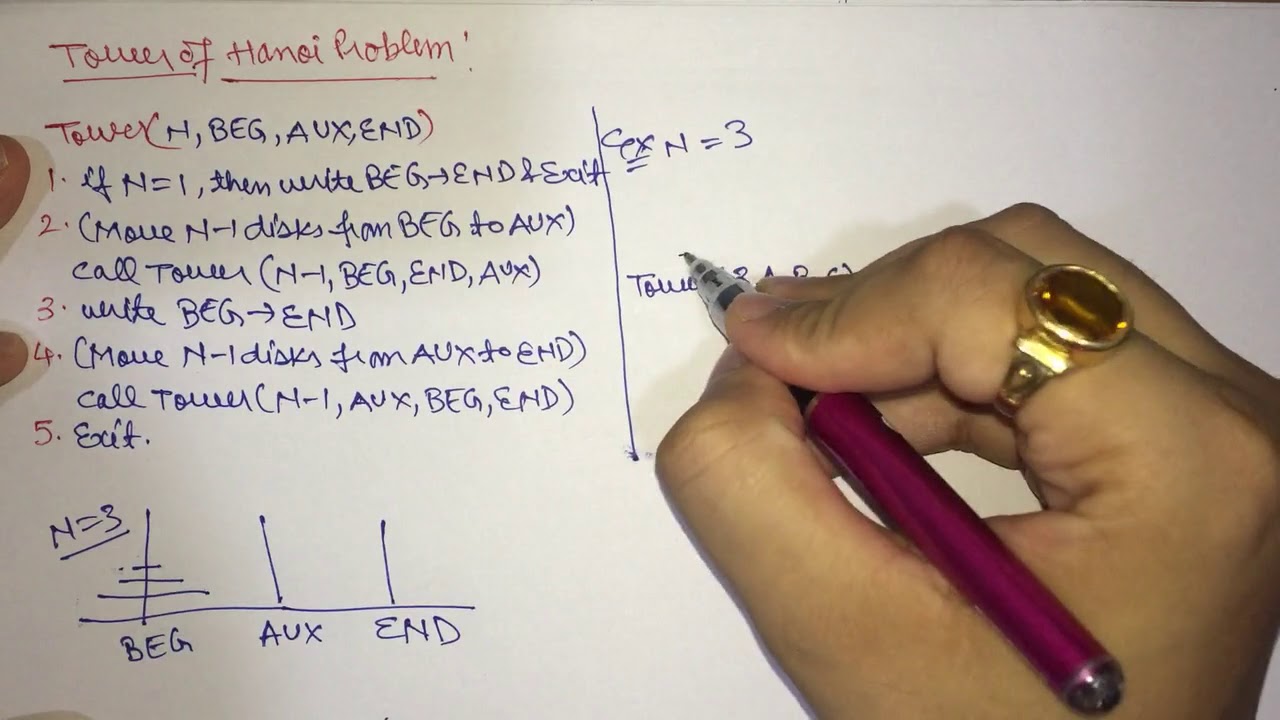 Tower of Hanoi Problem:
Tower(N, BEG, AUX, END)
1. if N=1, then write BEG→END & Exit
2. (Move N-1 disks from BEG to AUX)
call Tower (N-1, BEG, END, AUX)
3. write BEG→END
4. (Move N-1 disks from AUX to END)
call Tower(N-1, AUX, BEG, END)
5. Exit.
N=3
BEG AUX END
ex N=3